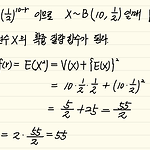 (½)^{10-r} 이므로 X~B(10, ½) 일때
변수 X의 확률 질량 함수가 된다.
f(r) = E(X²) = V(X) + {E(X)}²
= 10·½·½ + (10·½)²
= 5/2 + 25 = 55/2
= 2 · 55/2 = 55